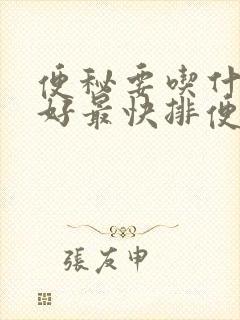 便秘要喫什
好最快排便
張友申